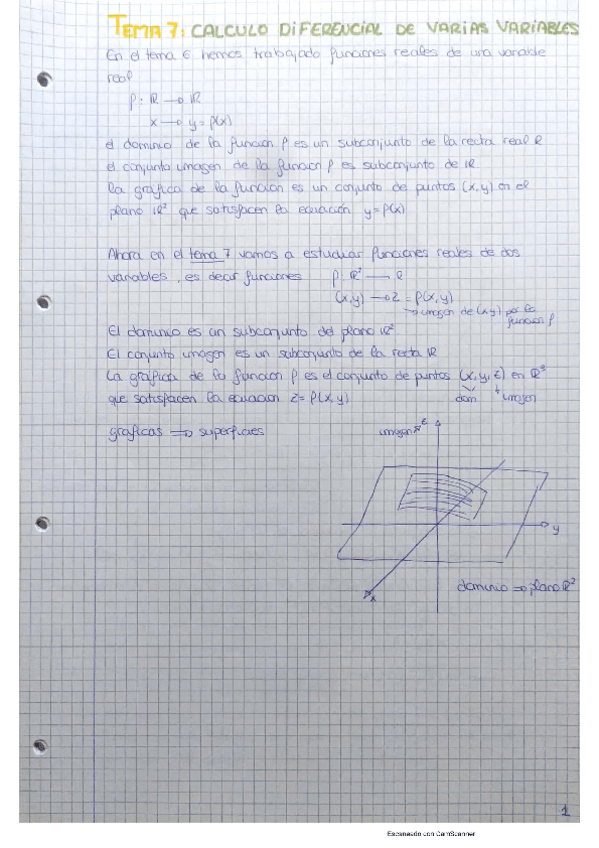 TEMA 7: CALCULO DIFERENCIAL DE VARIAS VARIABLES
En el tema 6 hemos trabajado funciones reales de una variable
real
f: ℝ → ℝ
x → y = f(x)
el dominio de la función f es un subconjunto de la recta real ℝ
el conjunto imagen de la función f es subconjunto de ℝ
la gráfica de la función es un conjunto de puntos (x,y) en el
plano ℝ² que satisfacen la ecuación y = f(x)
Ahora en el tema 7 vamos a estudiar funciones reales de dos
variables, es decir funciones f: ℝ² → ℝ
(x,y) → z = f(x,y)
→ imagen de (x,y) por la
función f
El dominio es un subconjunto del plano ℝ²
El conjunto imagen es un subconjunto de la recta ℝ
La gráfica de la función f es el conjunto de puntos (x,y,z) en ℝ³
que satisfacen la ecuación z = f(x,y) dom imagen
graficas ⇒ superficies
imagen z
y
x
dominio ⇒ plano ℝ²
1
Escaneado con CamScanner